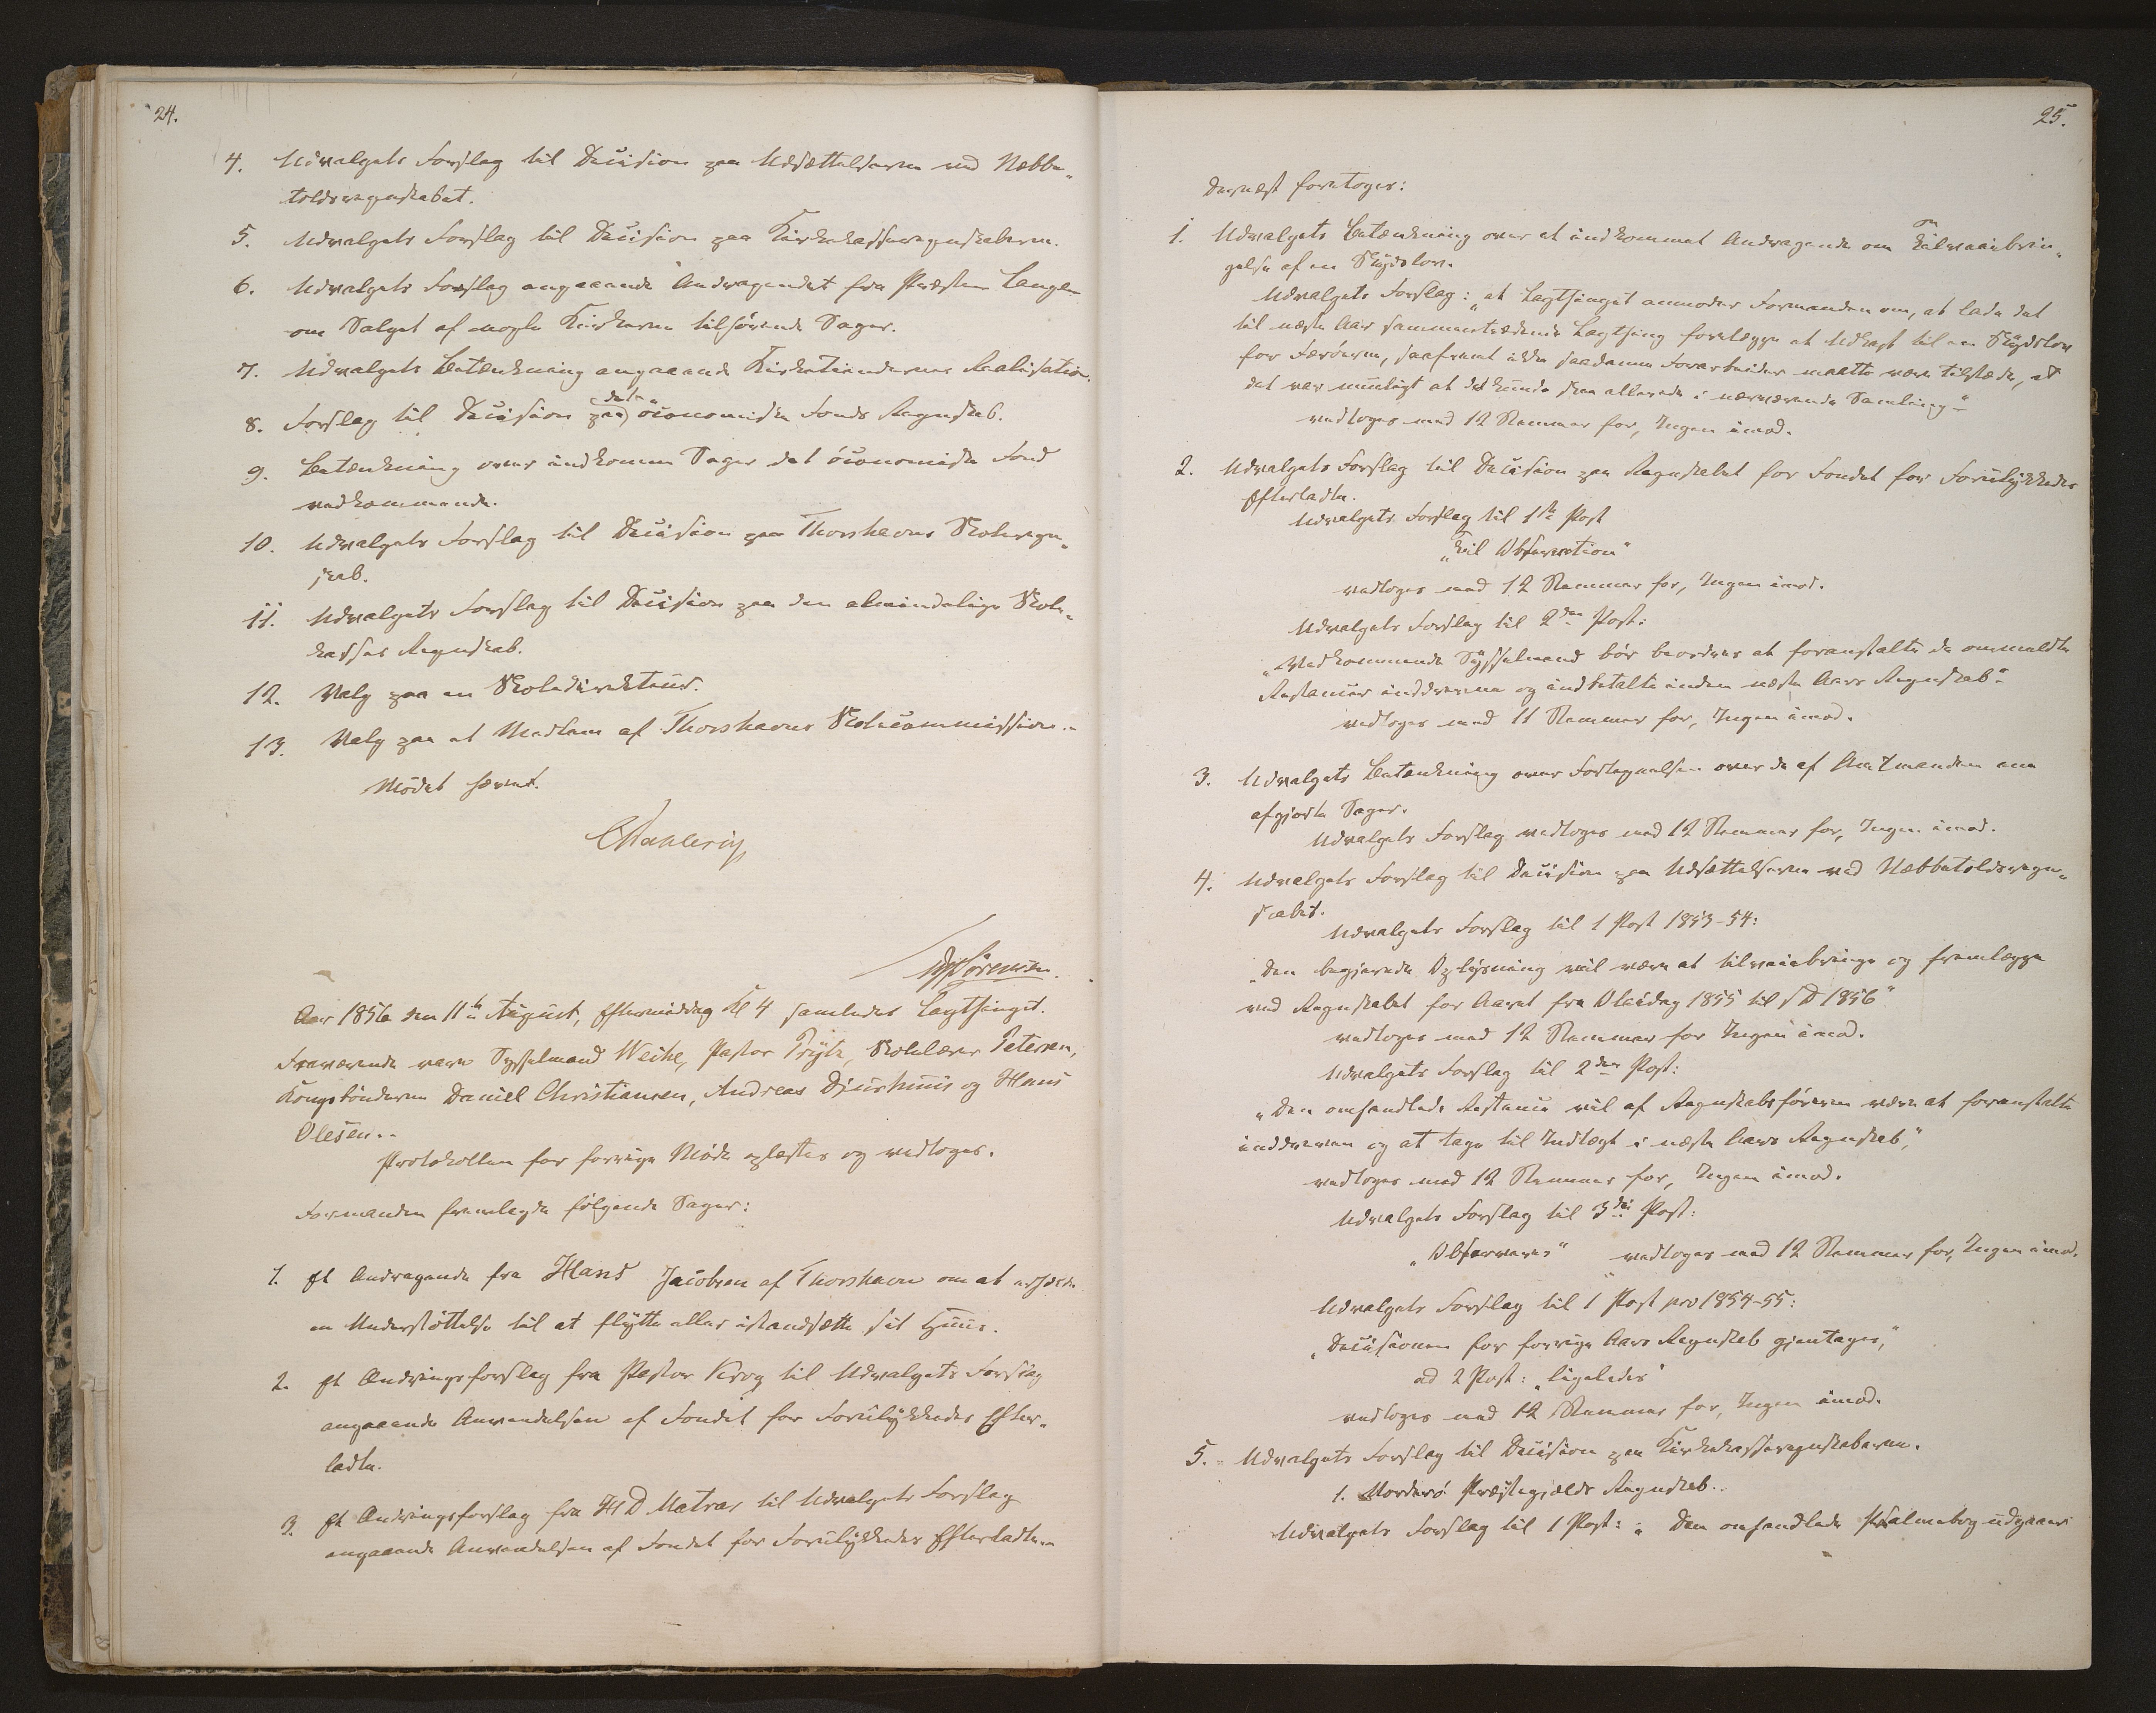 24.
4. Udvalgets Forslag til Decision paa Udsættelserne ved Næbbe-
toldregnskabet.
5. Udvalgets Forslag til Decision paa Kirkekasseregnskaberne.
6. Udvalgets Forslag angaaende Andragendet fra Præsten Lange
om Salget af nogle Kirkerne tilhørende Sager.
7. Udvalgets Betænkning angaaende Kirketiendernes Realisation.
8. Forslag til Decision paa det oiconomiske Fonds Regnskab.
9. Betænkning over indkomne Sager det óiconomiske Fond
vedkommende.
10. Udvalgets Forslag til Decision paa Thorshavns Skoleregn-
skab.
11. Udvalgets Forslag til Decision paa den almindelige Skole-
kasses Regnskab.
12. Valg paa en Skoledirekteur.
13. Valg paa et Medlem af Thorshavns Skolecommission.
Mödet hævet.
CDahlerup
HPSörensen.
Aar 1856 den 11te August, Eftermiddag Kl 4 samledes Lagthinget.
Fraværende vare Sysselmand Weihe, Pastor Prÿtz, Skolelærer Petersen,
Kongsbönderne Daniel Christiansen, Andreas Djurhuus og Hans
Olesen.
Protokollen for forrige Möde oplæstes og vedtoges.
Formanden fremlagde fölgende Sager:
1. Et Andragende fra Hans Jacobsen af Thorshavn om at erholde
en Understöttelse til at flÿtte eller istandsætte sit Huus.
2. Et Ændringsforslag fra Pastor Krog til Udvalgets Forslag
angaaende Anvendelsen af Fondet for Forulÿkkedes Efter-
ladte.
3. Et Ændringsforslag fra H D Matras til Udvalgets Forslag
angaaende Anvendelsen af Fondet for Forulÿkkedes Efterladte.
25.
Dernæst foretoges:
1. Udvalgets Betænkning over et indkommet Andragende om Tilveiebrin-
gelse af en Skÿdslov.
Udvalgets Forslag: "at Lagthinget anmoder Formanden om, at lade det
til næste Aar sammentrædende Lagthing forelægge et Udkast til en Skÿdslov
for Færöerne, saafremt ikke saadanne Forarbeider maatte være tilstede, at
det var muuligt at det kunde skee allerede i nærværende Samling"
vedtoges med 12 Stemmer for, Ingen imod.
2. Udvalgets Forslag til Decision paa Regnskabet for Fondet for Forulÿkkedes
Efterladte.
Udvalgets Forslag til 1ste Post
"Til Observation"
vedtoges med 12 Stemmer for, Ingen imod.
Udvalgets Forslag til 2den Post:
"Vedkommende Sÿsselmand bör beordres at foranstalte de ommeldte
Restancer inddrevne og indbetalte inden næste Aars Regnskab"
vedtoges med 11 Stemmer for, Ingen imod.
3. Udvalgets Betænkning over Fortegnelsen over de af Amtmanden ene
afgjorte Sager.
Udvalgets Forslag vedtoges med 12 Stemmer for, Ingen imod.
4. Udvalgets Forslag til Decision paa Udsættelserne ved Næbbetoldregn-
skabet.
Udvalgets Forslag til 1 Post 1853-54:
"Den begjerede Oplÿsning vil være at tilveiebringe og fremlægge
ved Regnskabet for Aaret fra Olaidag 1855 til s D 1856"
vedtoges med 12 Stemmer for Ingen imod.
Udvalgets Forslag til 2den Post:
"Den omhandlede Restance vil af Regnskabsföreren være at foranstalte
inddreven og at tage til Indtægt i næste Aars Regnskab,"
vedtoges med 12 Stemmer for, Ingen imod.
Udvalgets Forslag til 3die Post:
"Observeres" vedtoges med 12 Stemmer for, Ingen imod.
Udvalgets Forslag til 1 Post pro 1854-55:
"Decisionen for forrige Aars Regnskab gjentages,"
ad 2 Post: "ligeledes"
vedtoges med 12 Stemmer for, Ingen imod.
5. Udvalgets Forslag til Decision paa Kirkekasseregnskaberne.
1. Norderö Præstegjælds Regnskab.
Udvalgets Forslag til 1 Post: "Den omhandlede Psalmebog udgaaer